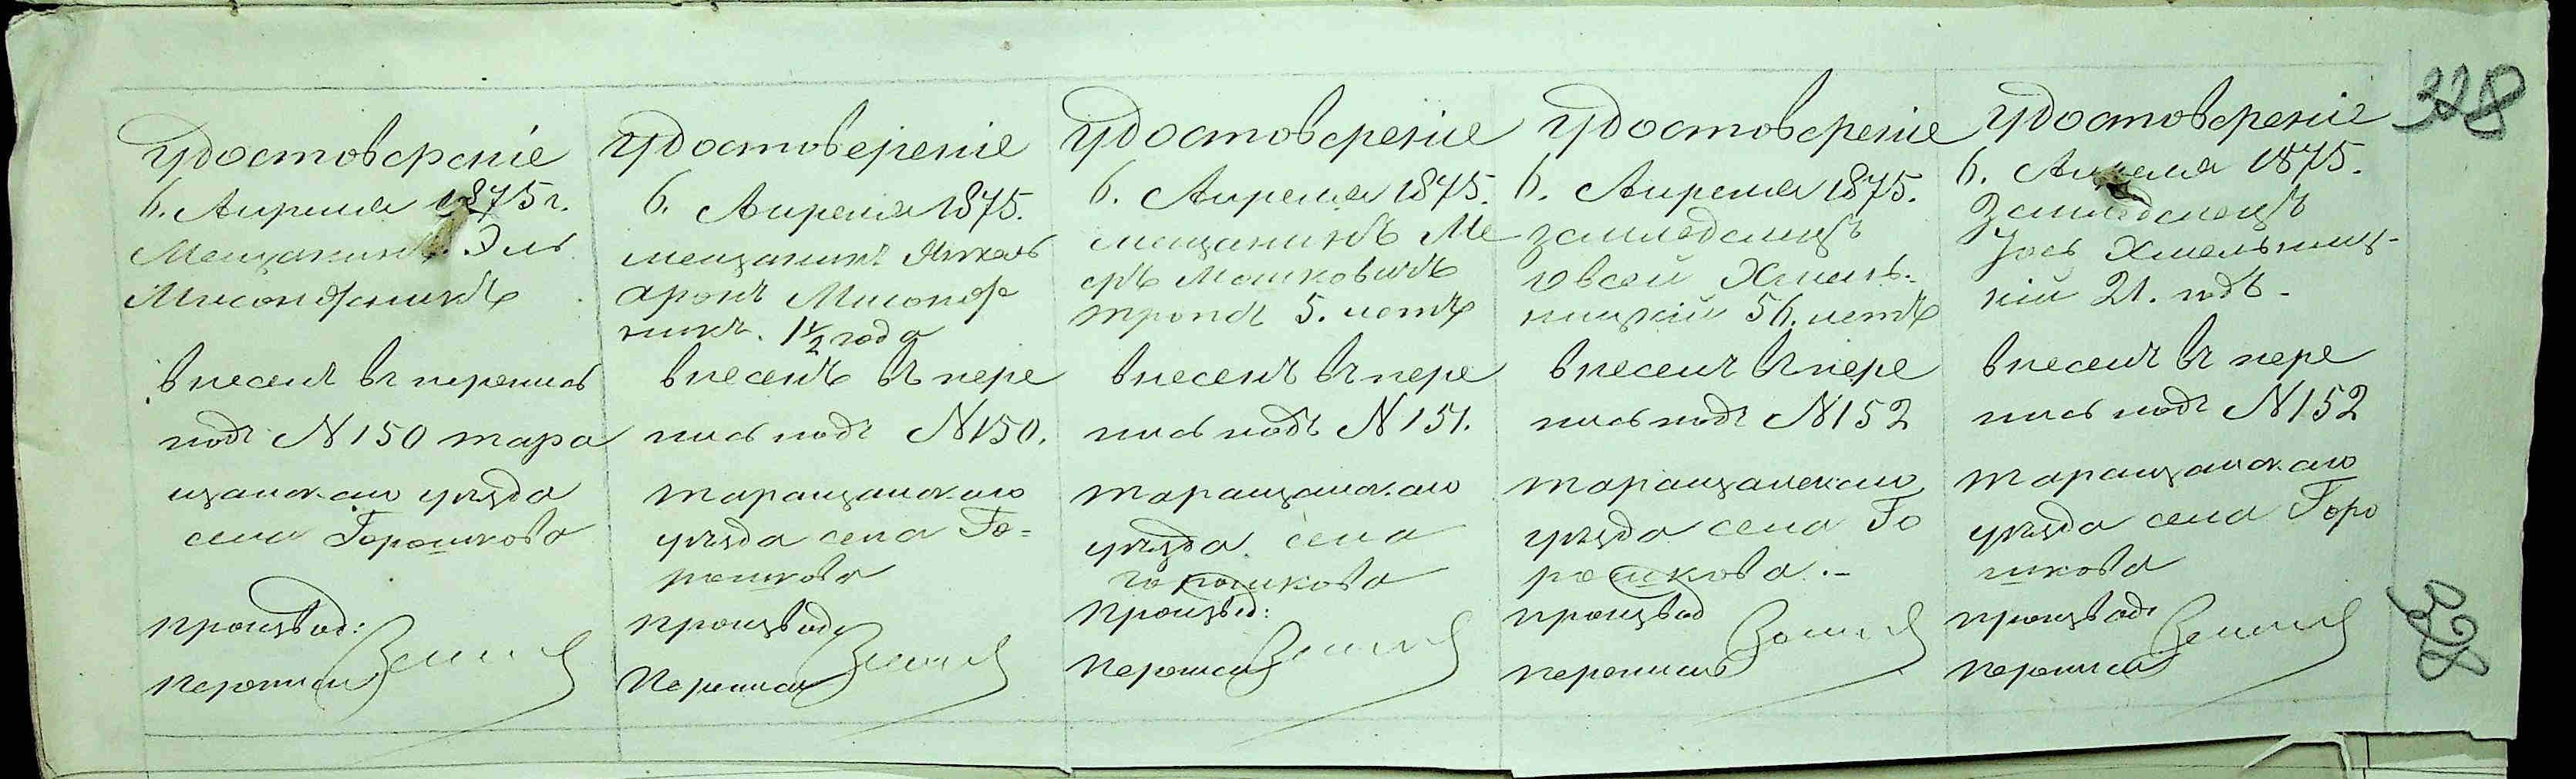 328
Удостоверенiе
6. Апреля 1875 г.
Мещанинъ Эль
внесенъ въ перепись
подъ N 150 тара
щанскаго уѣзда
села Горошкова
производ:
перепись
Удостоверенiе
6. Апреля 1875.
мещанинъ
аронъ
никъ. 1 1/2 года
внесенъ въ пере
пись подъ N 150.
таращанскаго
уѣзда села Го=
рошкова
производ
перепись
Удостоверенiе
6. Апреля 1875.
мещанинъ Ме
еръ Мошковичъ
5. летъ
внесенъ въ пере
пись подъ N 151.
таращанскаго
уѣзда села
горошкова
производ:
перепись
Удостоверенiе
6. Апреля 1875.
земледелецъ
Овсей Хмель-
ницкiй 56. летъ
внесенъ въ пере
пись подъ N 152
таращанскаго
уѣзда села Го
рошкова.-
производ
перепись
Удостоверенiе
6. Апреля 1875.
Земледелецъ
Iось Хмельниц-
кiй 21. годъ-
внесенъ въ пере
пись подъ N 152
таращанскаго
уѣзда села Горо
шкова
производ
перепись